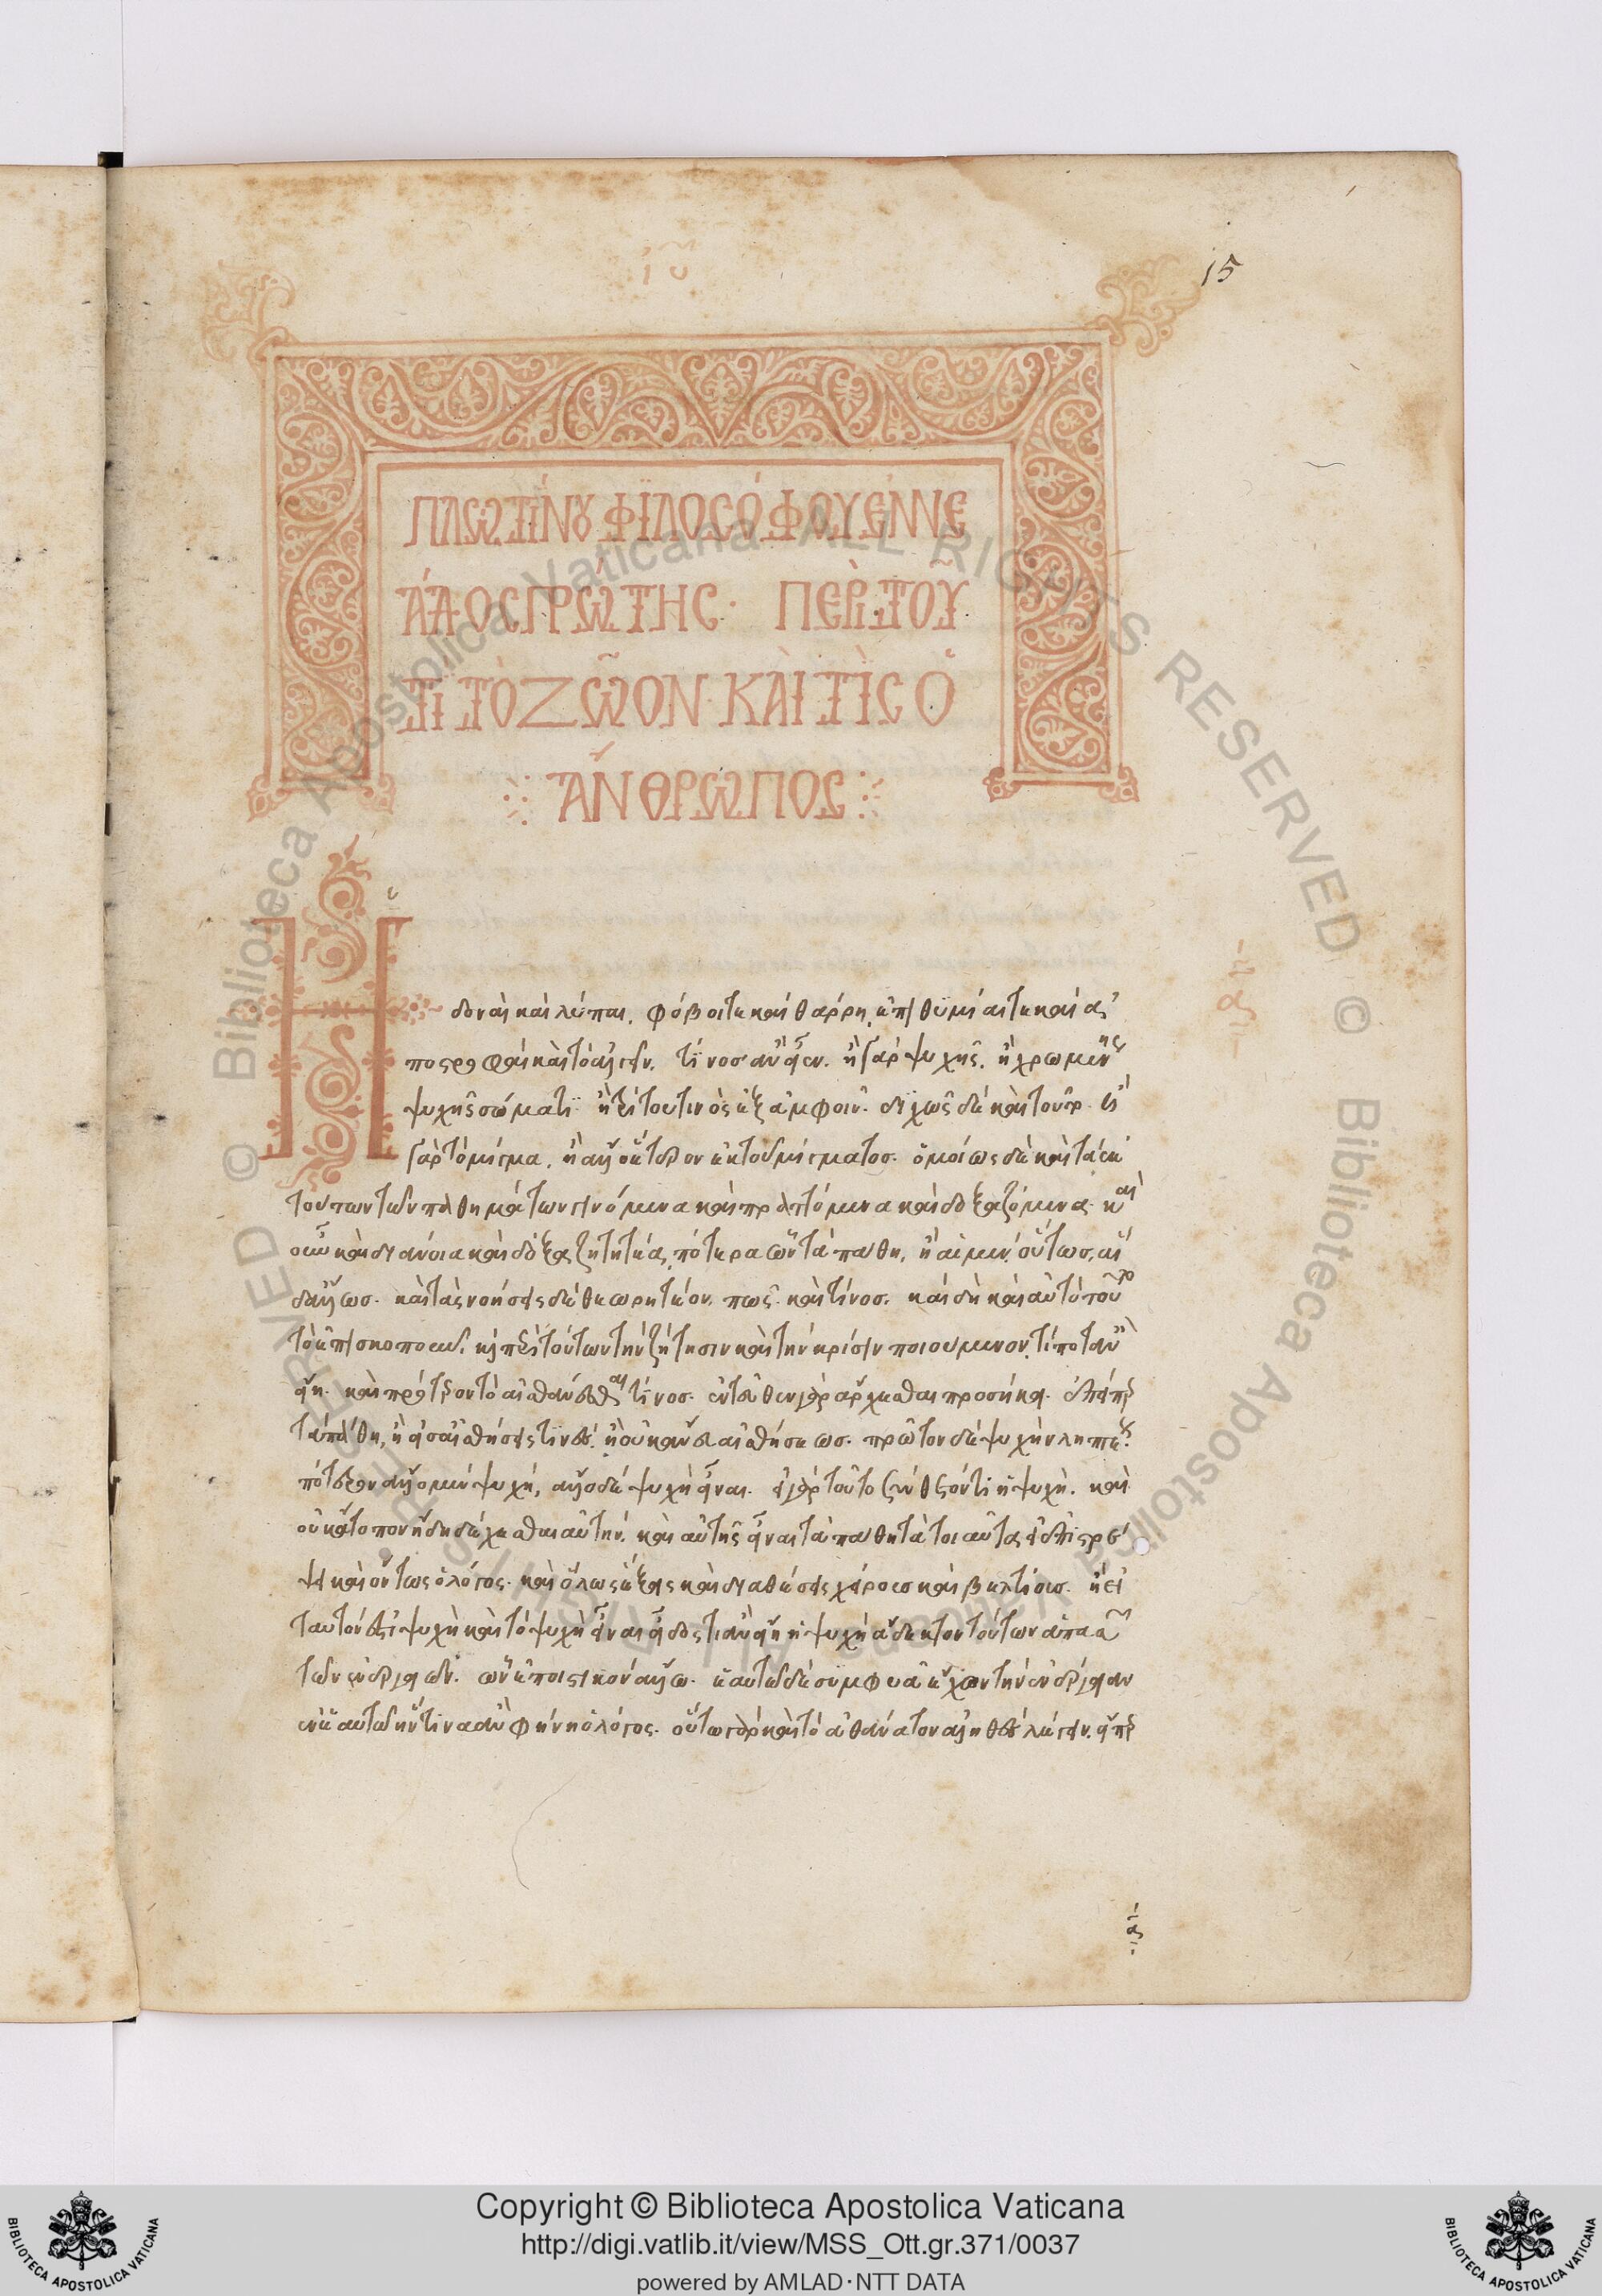 15
ΠΛΩΤΙΝΟΥ ΦΙΛΟΣΟΦΟΥ ΕΝΝΕ
ΑΔΟΣ ΠΡΩΤΗΣ· ΠΕΡΙ ΤΟΥ
ΤΙ ΤΟ ΖΩΟΝ ΚΑΙ ΤΙΣ Ο
ΑΝΘΡΩΠΟΣ
Ἡδοναὶ καὶ λύπαι. φόβοι τε καὶ θάρρη. ἐπιθυμίαι τε καὶ ἀ
ποστροφαὶ καὶ τὸ ἀλγεῖν. τίνος ἂν εἶεν. ἢ γὰρ ψυχῆς. ἢ χρωμένης
ψυχῆς σώματι ἢ τρίτου τινὸς ἐξ ἀμφοῖν. διχῶς δὲ καὶ τοῦτο. ἢ
γὰρ τὸ μίγμα. ἢ ἄλλο ἕτερον ἐκ τοῦ μίγματος. ὁμοίως δὲ καὶ τὰ ἐκ
τούτων τῶν παθημάτων γινόμενα καὶ πραττόμενα καὶ δοξαζόμενα. καὶ
οὖν καὶ διάνοια καὶ δόξα ζητητέα, πότερα ὧν τὰ πάθη, ἢ αἱ μὲν οὕτως, αἱ
δὲ ἄλλως. καὶ τὰς νοήσεις δὲ θεωρητέον. πῶς. καὶ τίνος. καὶ δὴ καὶ αὐτὸ τοῦτο
τὸ ἐπισκοποῦν. καὶ περὶ τούτων τὴν ζήτησιν καὶ τὴν κρίσιν ποιούμενον, τί ποτ' ἂν
εἴη. καὶ πρότερον τὸ αἰσθάνεσθαι τίνος. ἐντεῦθεν γὰρ ἄρχεσθαι προσήκει. ἐπείπερ
τὰ πάθη, ἢ εἰσὶν αἰσθήσεις τινές. ἢ οὐκ ἄνευ αἰσθήσεως. πρῶτον δὲ ψυχὴν ληπτέον.
πότερον ἄλλο μὲν ψυχή, ἄλλο δὲ ψυχῇ εἶναι. εἰ γὰρ τοῦτο σύνθετόν τι ἡ ψυχή. καὶ
οὐκ ἄτοπον ἤδη δέχεσθαι αὐτήν. καὶ αὐτῆς εἶναι τὰ πάθη τὰ τοιαῦτα, εἰ ἐπιτρέ
ψει καὶ οὕτως ὁ λόγος. καὶ ὅλως ἕξεις καὶ διαθέσεις χείρους καὶ βελτίους. ἢ εἰ
ταὐτόν ἐστι ψυχὴ καὶ τὸ ψυχῇ εἶναι εἶδός τι ἂν εἴη ἡ ψυχὴ ἄδεκτον τούτων ἁπασῶν
τῶν ἐνεργειῶν. ὧν ἐποιστικὸν ἄλλῳ. ἑαυτῷ δὲ συμφυᾶ ἔχον τὴν ἐνέργειαν
ἐν ἑαυτῷ ἥντινα ἂν φήνῃ ὁ λόγος. οὕτω γὰρ καὶ τὸ ἀθάνατον ἀληθὲς λέγειν. εἴπερ
Copyright © Biblioteca Apostolica Vaticana
http://digi.vatlib.it/view/MSS_Ott.gr.371/0037
powered by AMLAD·NTT DATA